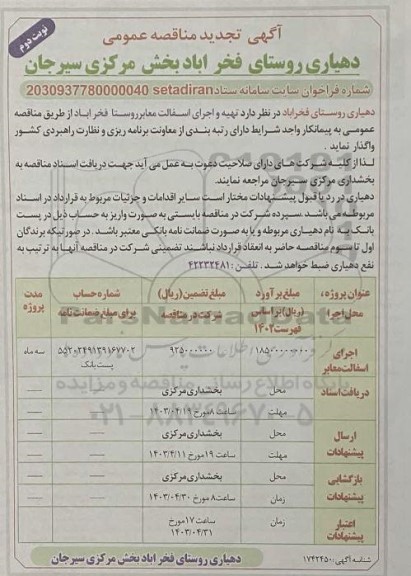 نوبت دوم
آگهی تجدید مناقصه عمومی
دهیاری روستای فخر اباد بخش مرکزی سیرجان
شماره فراخوان سایت سامانه ستاد setadiran 2030937780000040
دهیاری روستای فخراباد در نظر دارد تهیه و اجرای اسفالت معابر روستا فخر اباد از طریق مناقصه
عمومی به پیمانکار واجد شرایط دارای رتبه بندی از معاونت برنامه ریزی و نظارت راهبردی کشور
واگذار نماید.
لذا از کلیه شرکت های دارای صلاحیت دعوت به عمل می آید جهت دریافت اسناد مناقصه به
بخشداری مرکزی سیرجان مراجعه نمایند.
دهیاری در رد یا قبول پیشنهادات مختار است سایر اقدامات و جزئیات مربوط به قرارداد در اسناد
مربوطه می باشد. سپرده شرکت در مناقصه بایستی به صورت واریز به حساب ذیل در پست
بانک به نام دهیاری مربوطه و یا به صورت ضمانت نامه بانکی معتبر باشد. در صورتیکه برندگان
اول تا سوم مناقصه حاضر به انعقاد قرارداد نباشند تضمینی شرکت در مناقصه آنها به ترتیب به
نفع دهیاری ضبط خواهد شد. تلفن: ۴۲۲۳۲۴۸۱
عنوان پروژه، محل اجرا | مبلغ برآورد (ریال) براساس فهرست ۱۴۰۲ | مبلغ تضمین (ریال) شرکت در مناقصه | شماره حساب برای مبلغ ضمانت نامه | مدت پروژه
اجرای اسفالت معابر | ۹۲۵۰۰۰۰۰۰ | پست بانک | سه ماه
دریافت اسناد | محل | بخشداری مرکزی
مهلت | ساعت ۸ مورخ ۱۴۰۳/۰۴/۱۹
ارسال پیشنهادات | محل | بخشداری مرکزی
مهلت | ساعت ۱۹ مورخ ۱۴۰۳/۴/۱۱
بازگشایی پیشنهادات | محل | بخشداری مرکزی
زمان | ساعت ۸ مورخ ۱۴۰۳/۰۴/۳۰
اعتبار پیشنهادات | زمان | ساعت ۱۷ مورخ ۱۴۰۳/۰۴/۳۱
شناسه آگهی: ۱۷۴۲۴۵۰۰
دهیاری روستای فخر اباد بخش مرکزی سیرجان
ParsNamadData
پایگاه اطلاع رسانی مناقصه و مزایده
۰۲۱-۸۸۳۴۹۶۷۰-۵